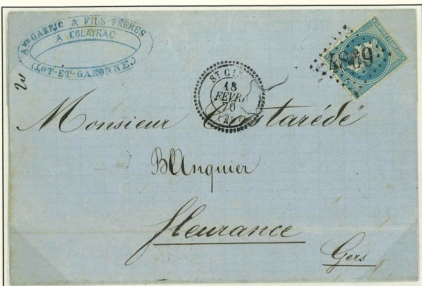 & FILS FRÈRES
A COLAYRAC
(LOT-ET-GARONNE)
18
FEVR.
70
Monsieur Tarédé
BAnquier
fleurance
Gers